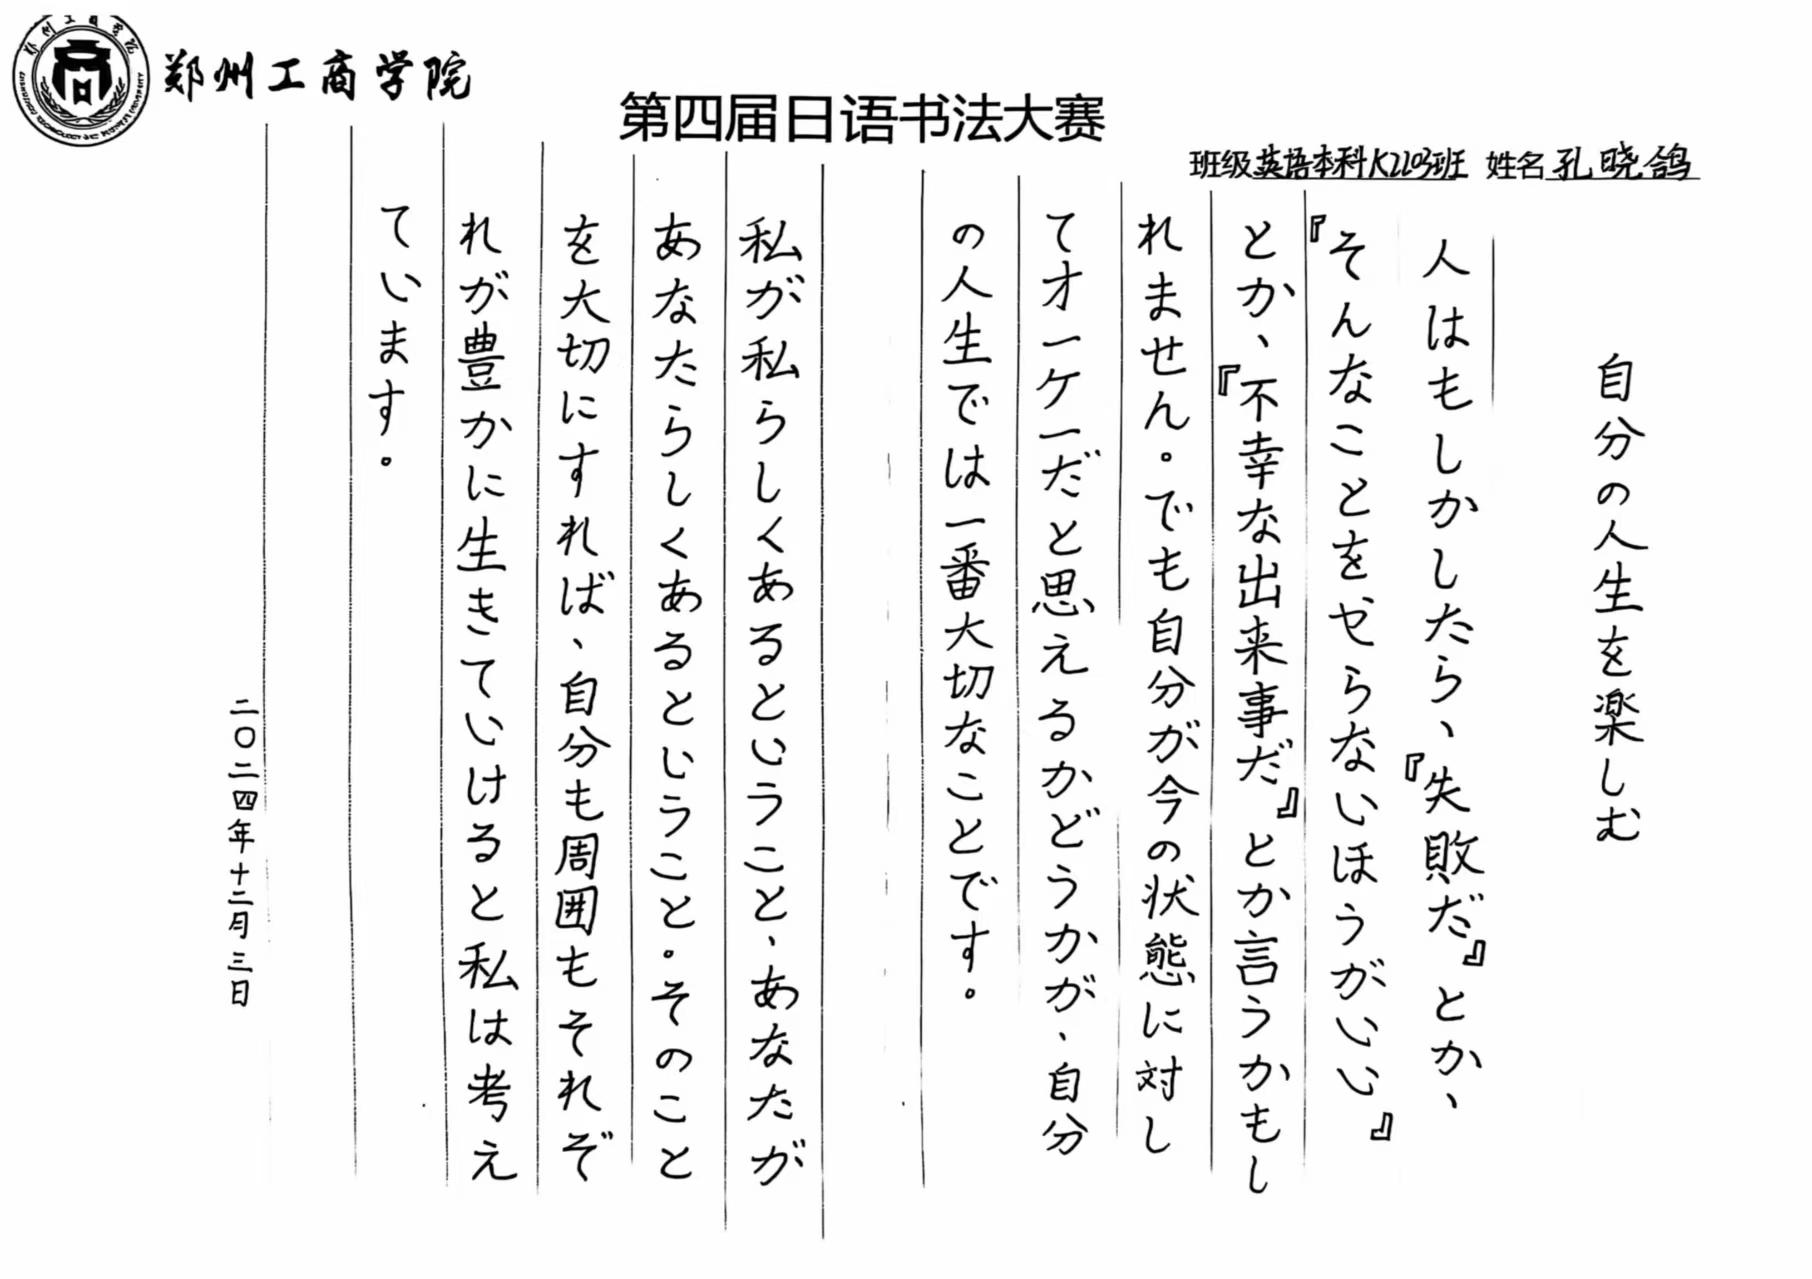 郑州工商学院
第四届日语书法大赛
班级英语本科K2203班 姓名孔晓鸽
自分の人生を楽しむ
人はもしかしたら、『失敗だ』とか、
『そんなことをゼらないほうがいい』
とか、『不幸な出来事だ』とか言うかもし
れません。でも自分が今の状態に対し
てオーケーだと思えるかどうかが、自分
の人生では一番大切なことです。
私が私らしくあるということ、あなたが
あなたらしくあるということ。そのこと
を大切にすれば、自分も周囲もそれぞ
れが豊かに生きていけると私は考え
ています。
二〇二四年十二月三日